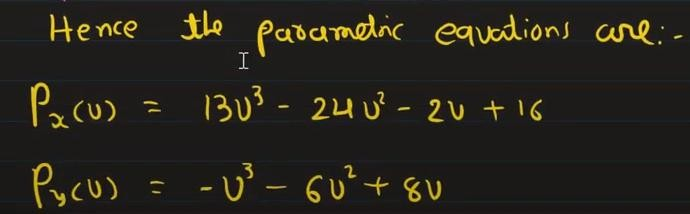 Hence the parametric equations are:-
Pₓ(u) = 13u³ - 24u² - 2u + 16
Pᵧ(u) = -u³ - 6u² + 8u